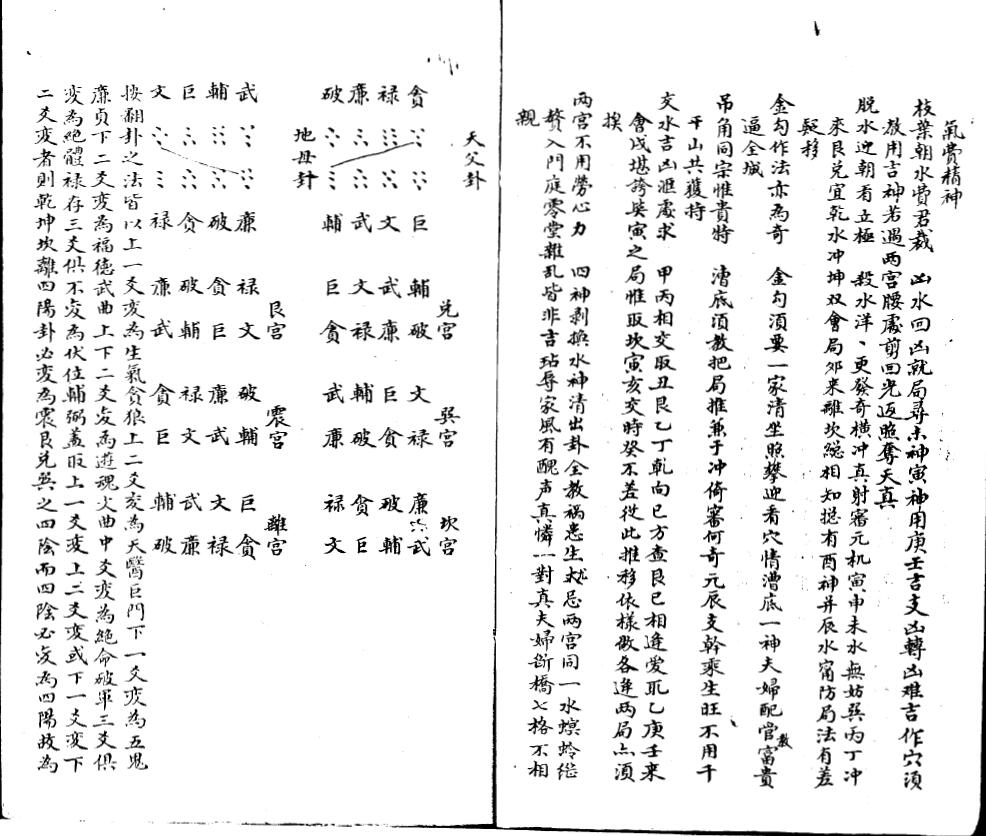 氣費精神
枝葉朝水費君裁　凶水回凶就局尋未神寅神用庚壬吉支凶轉凶难吉作穴須
教用吉神若遇两宮腰處剪回光返照奪天真
脱水迎朝看立極　殺水洋、更發奇橫冲真射審元机寅申未水無妨巽丙丁冲
來艮兑宜乾水冲坤双會局夘来離坎総相知挺有酉神并辰水甯防局法有差
疑移
金勾作法亦為奇　金勾須要一家清坐照攀迎看穴情漕底一神夫婦配官富貴
逼金城
吊角同宗惟貴特　漕底須教把局推兼于冲倚審何奇元辰支幹乘生旺不用千
干山共獲持
交水吉凶滙處求　甲丙相交取丑艮乙丁乾向巳方查艮巳相逢爱乖乙庚壬来
會戌堪誇癸寅之局惟取坎寅亥交時癸不差從此推移依樣做各逢两局亦須
挨
两宮不用勞心力　四神剥換水神清出卦全教禍患生尤忌两宮同一水螟蛉継
贅入門庭零堂雜乱皆非吉玷辱家風有醜声真憐一對真夫婦斷橋七格不相
親
天父卦
地母卦
貪禄廉破
巨文武輔
武輔巨文
廉破貪禄
兑宮
輔武文巨
破廉禄貪
艮宮
禄貪破廉
文巨輔武
巽宮
文巨輔武
禄貪破廉
震宮
破廉禄貪
輔武文巨
坎宮
廉破貪禄
武輔巨文
離宮
巨文武輔
貪禄廉破
按翻卦之法皆以上一爻変為生氣貪狼上二爻変為天醫巨門下一爻变為五鬼
廉貞下二爻变為福德武曲上下二爻変為遊魂文曲中爻变為絶命破軍三爻俱
变為絶體禄存三爻俱不变為伏位輔弼蓋取上一爻变上二爻变或下一爻変下
二爻变者則乾坤坎離四陽卦必变為震艮兑巽之四陰而四陰必変為四陽故為